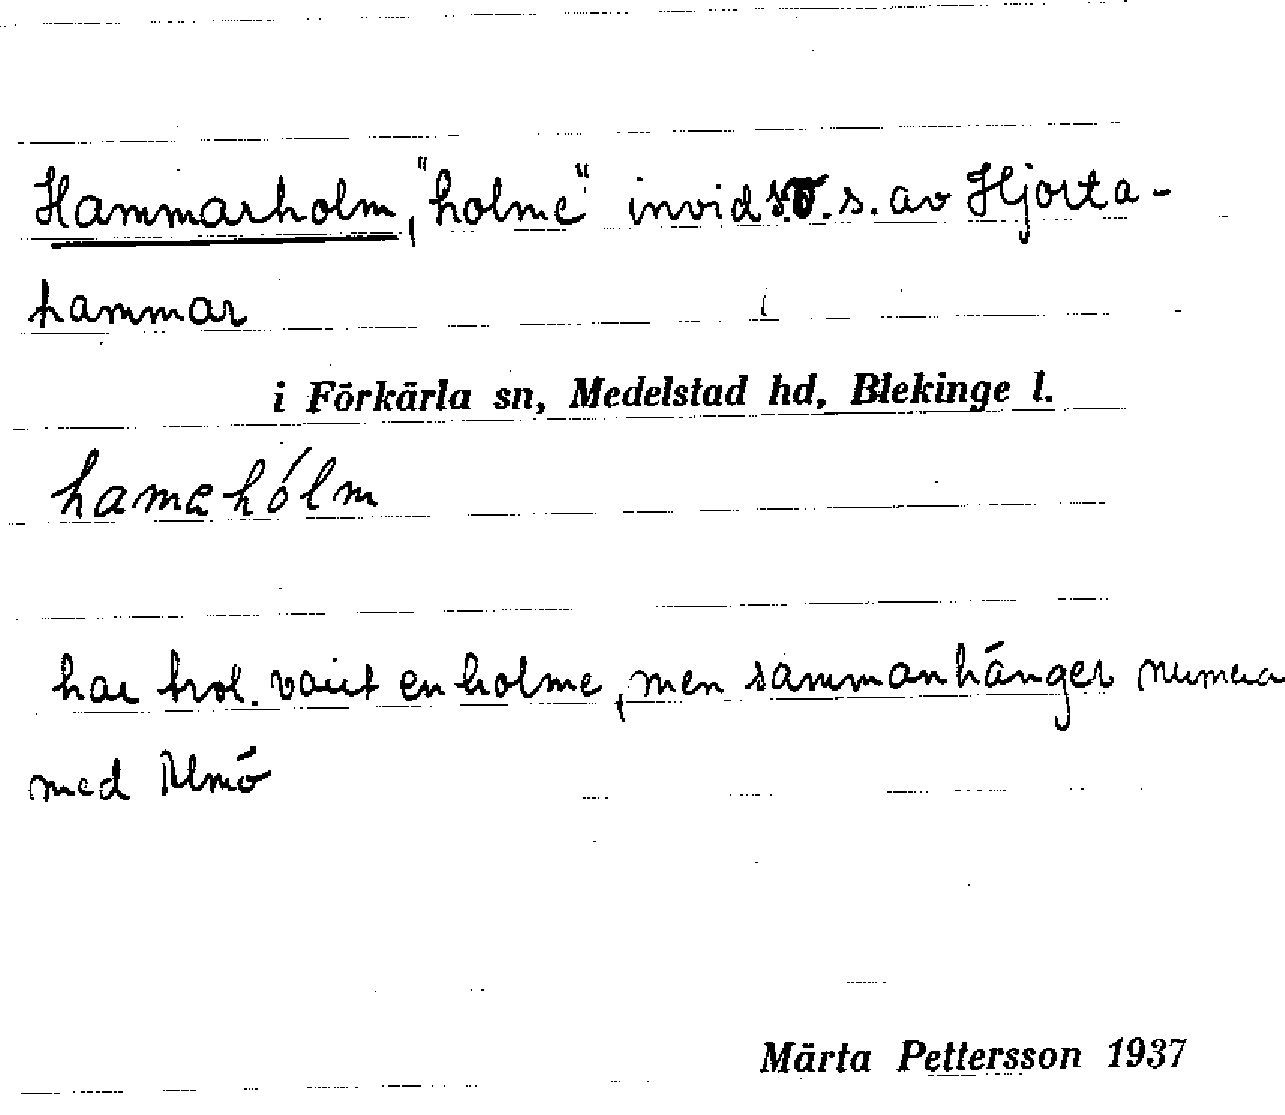 Hammarholm, "holme" invid s.v. s. av Hjorta-
hammar
i
i Förkärla sn, Medelstad hd, Blekinge l.
hamahólm
har trol. varit en holme, men sammanhänger numera
med Almö
Märta Pettersson 1937